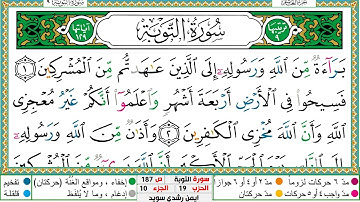 سُورَةُ التَّوْبَةِ
بَرَآءَةٌ مِّنَ ٱللَّهِ وَرَسُولِهِۦٓ إِلَى ٱلَّذِينَ عَـٰهَدتُّم مِّنَ ٱلْمُشْرِكِينَ ١
فَسِيحُوا۟ فِى ٱلْأَرْضِ أَرْبَعَةَ أَشْهُرٍ وَٱعْلَمُوٓا۟ أَنَّكُمْ غَيْرُ مُعْجِزِى
ٱللَّهِ وَأَنَّ ٱللَّهَ مُخْزِى ٱلْكَـٰفِرِينَ ٢ وَأَذَٰنٌ مِّنَ ٱللَّهِ وَرَسُولِهِۦٓ
مدّ ٦ حركات لزوماً مدّ ٢ أو ٤ أو ٦ جوازاً
إخفاء، ومواقع الغُنَّة (حركتان) تفخيم
سورة التوبة ص 187
الحزب 19 الجزء 10
مدّ حركتان
إدغام، وما لا يُلفَظ قلقلة
ايمن رشدي سويد